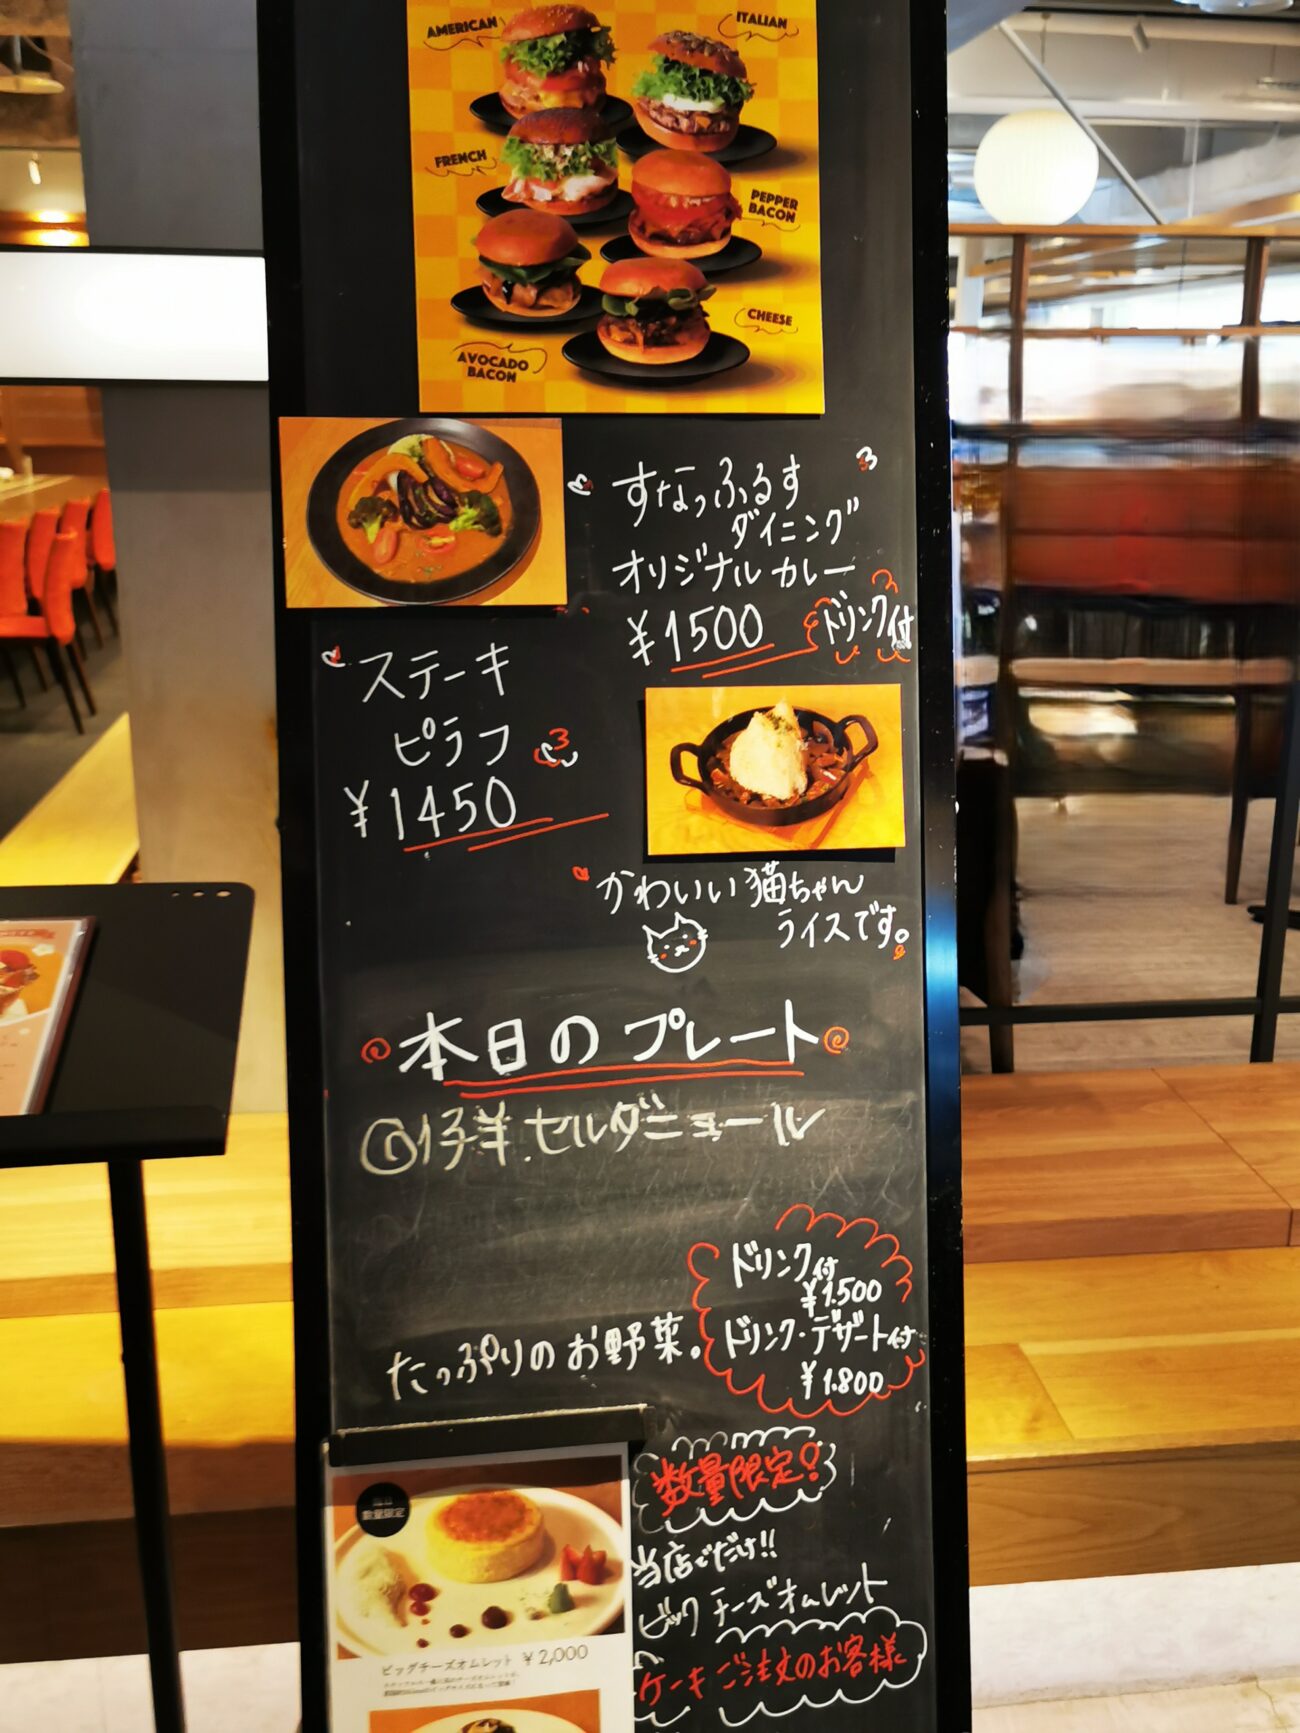 AMERICAN
ITALIAN
FRENCH
PEPPER
BACON
CHEESE
AVOCADO
BACON
すなっふるす
ダイニング
オリジナルカレー
¥1500 ドリンク付
ステーキ
ピラフ
¥1450
かわいい猫ちゃん
ライスです。
本日のプレート
①仔羊セルダニョール
ドリンク付
¥1.500
ドリンク・デザート付
¥1.800
たっぷりのお野菜。
数量限定!
当店でだけ!!
ビックチーズオムレット
ケーキご注文のお客様
数量限定
ビッグチーズオムレット ¥2,000